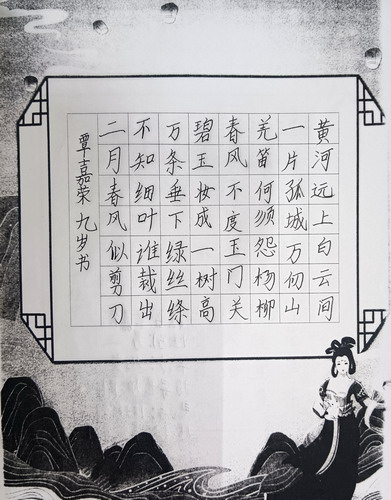 黄河远上白云间
一片孤城万仞山
羌笛何须怨杨柳
春风不度玉门关
碧玉妆成一树高
万条垂下绿丝绦
不知细叶谁裁出
二月春风似剪刀
覃嘉荣 九岁书